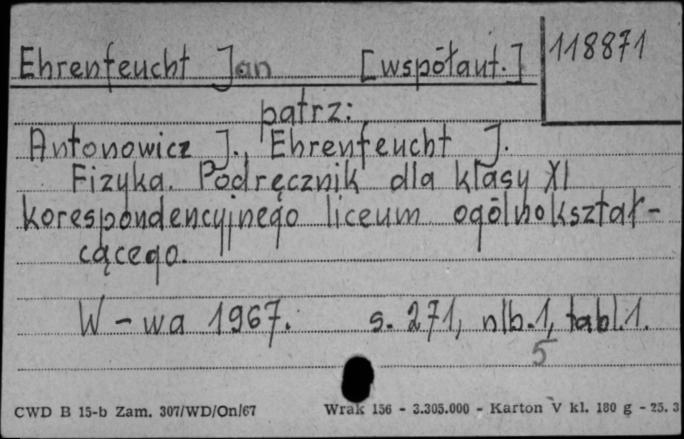 Ehrenfeucht Jan [współaut.]
118871
patrz:
Antonowicz J., Ehrenfeucht J.
Fizyka. Podręcznik dla klasy XI
korespondencyjnego liceum ogólnokształ-
cącego.
W-wa 1967. s. 271, nlb. 1, tabl. 1.
5
CWD B 15-b Zam. 307/WD/On/67 Wrak 156 - 3.305.000 - Karton V kl. 180 g - 25. 3